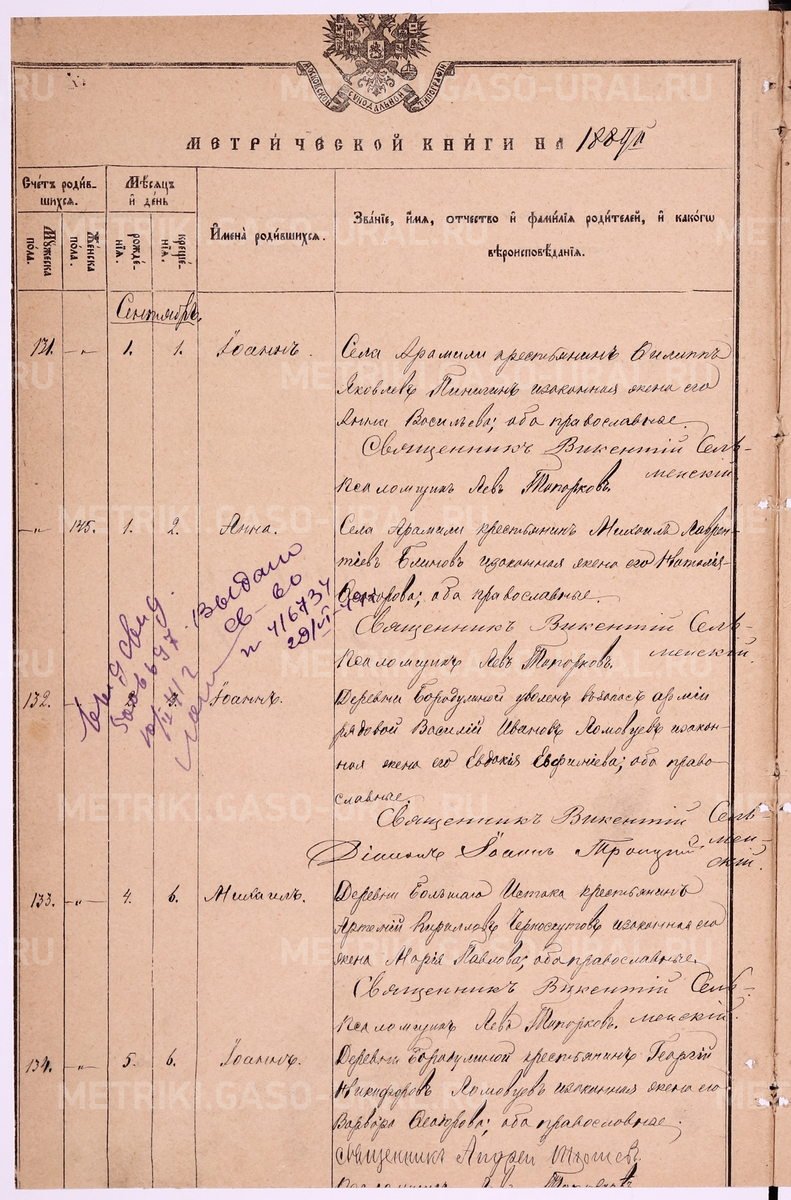 МОСКОВСКОЙ СѴНОДАЛЬНОЙ ТИПОГРАФІИ
МЕТРИ́ЧЕСКОЙ КНИ́ГИ НА 188
Сче́тъ роди́в-
шихся.
Мѣ́сяцъ
и҆ де́нь
Му́жеска
по́ла.
Же́нска
по́ла.
рожде́-
нїѧ.
креще́-
нїѧ.
И҆мена̀ роди́вшихся.
Зва́нїе, и҆́мѧ, ѻ҆́тчество и҆ фами́лїѧ роди́телей, и҆ како́гѡ
вѣроисповѣ́данїѧ.
Сентябрь.
131. -„- 1. 1. Іоаннъ.
Села Арамили крестьянинъ Филиппъ
Яковлевъ Пинигинъ изаконная жена его
Анна Васильева; оба православные.
Священникъ Викентій Сель-
менскій
Псаломщикъ Левъ Топорковъ.
-„- 125. 1. 2. Анна.
Села Арамили крестьянинъ Михаилъ Лаврен-
тіевъ Блиновъ изаконная жена его Наталія
Ѳедорова; оба православные.
Священникъ Викентій Сель-
менскій.
Псаломщикъ Левъ Топорковъ.
Выдано
св-во
n 416734
132. Іоаннъ.
Деревни Бородулиной уволен. въ запасъ арміи
рядовой Василій Ивановъ Ломовцевъ изакон-
ная жена его Евдокія Евфиміева; оба право-
славные.
Священникъ Викентій Сель-
мен-
скій.
Діаконъ Іоаннъ Троицкій.
133. -„- 4. 6. Михаилъ.
Деревни Большаго Истока крестьянинъ
Артемій Кирилловъ Черноскутовъ изаконная его
жена Марія Павлова; оба православные.
Священникъ Викентій Сель-
менскій.
Псаломщикъ Левъ Топорковъ.
134. -„- 5. 6. Іоаннъ.
Деревни Бородулиной крестьянинъ Георгій
Никифоровъ Ломовцевъ изаконная жена его
Варвара Ѳеодорова; оба православные.
Священникъ Андрей
METRIKI.GASO-URAL.RU